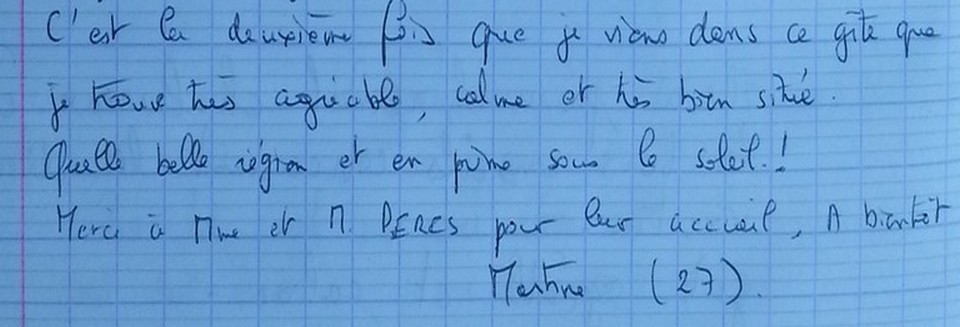 C'est la deuxième fois que je viens dans ce gîte que
je trouve très agréable, calme et très bien situé.
Quelle belle région et en prime sous le soleil.!
Merci à Mme et M. PERES pour leur accueil, A bientôt
Martine (27).